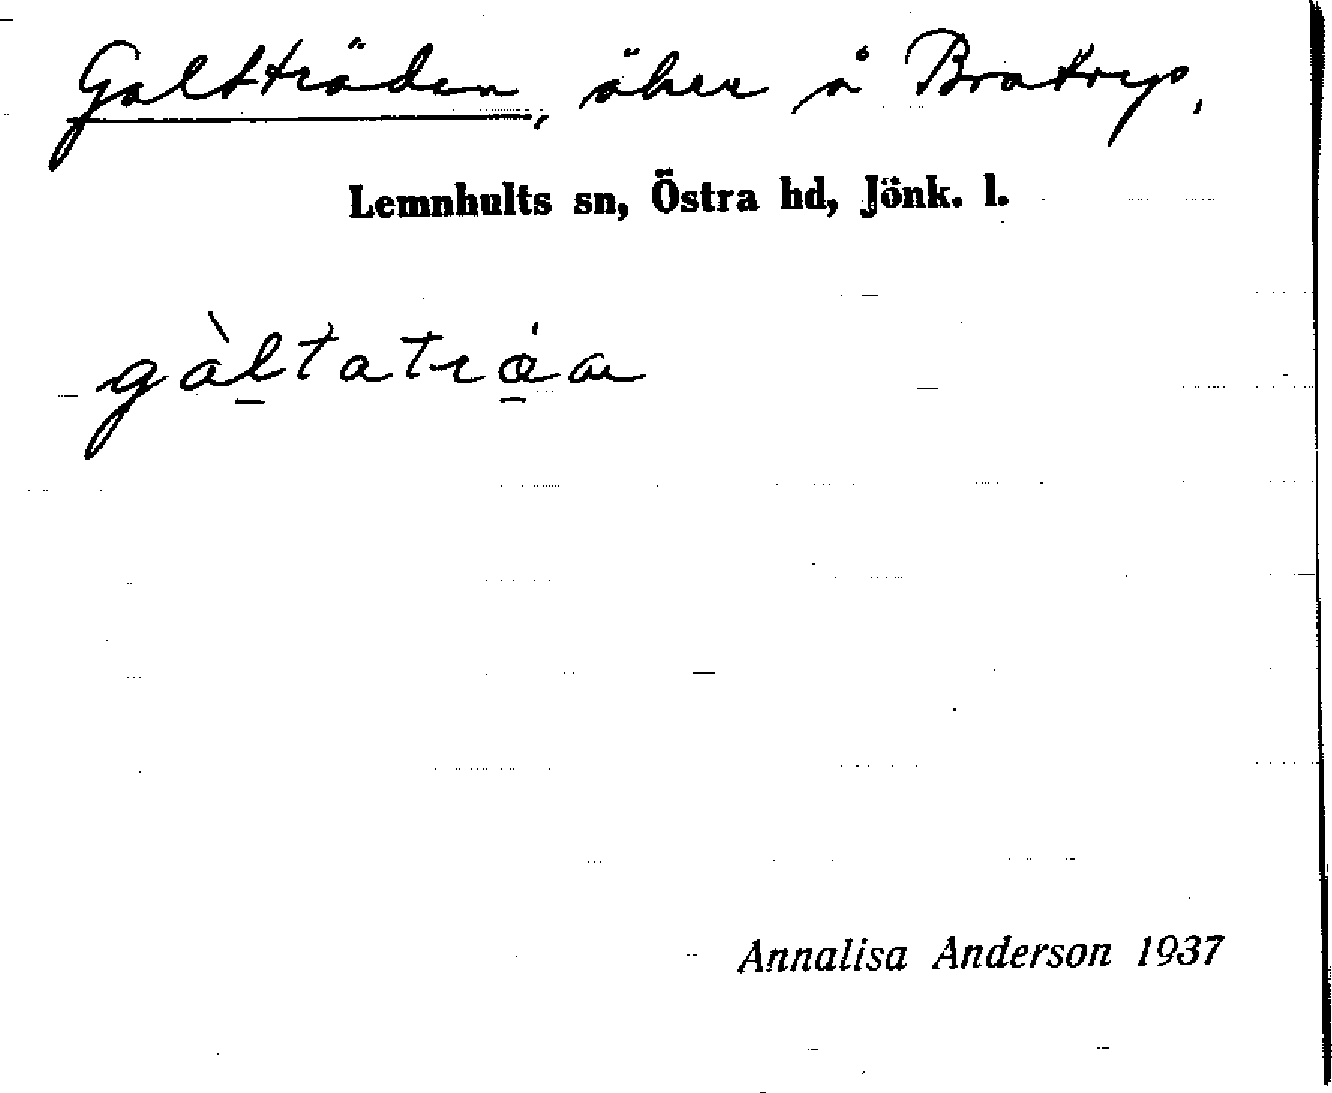 Galtträden, åker å Bratryp,
Lemnhults sn, Östra hd, Jönk. l.
gàltatráa
Annalisa Anderson 1937